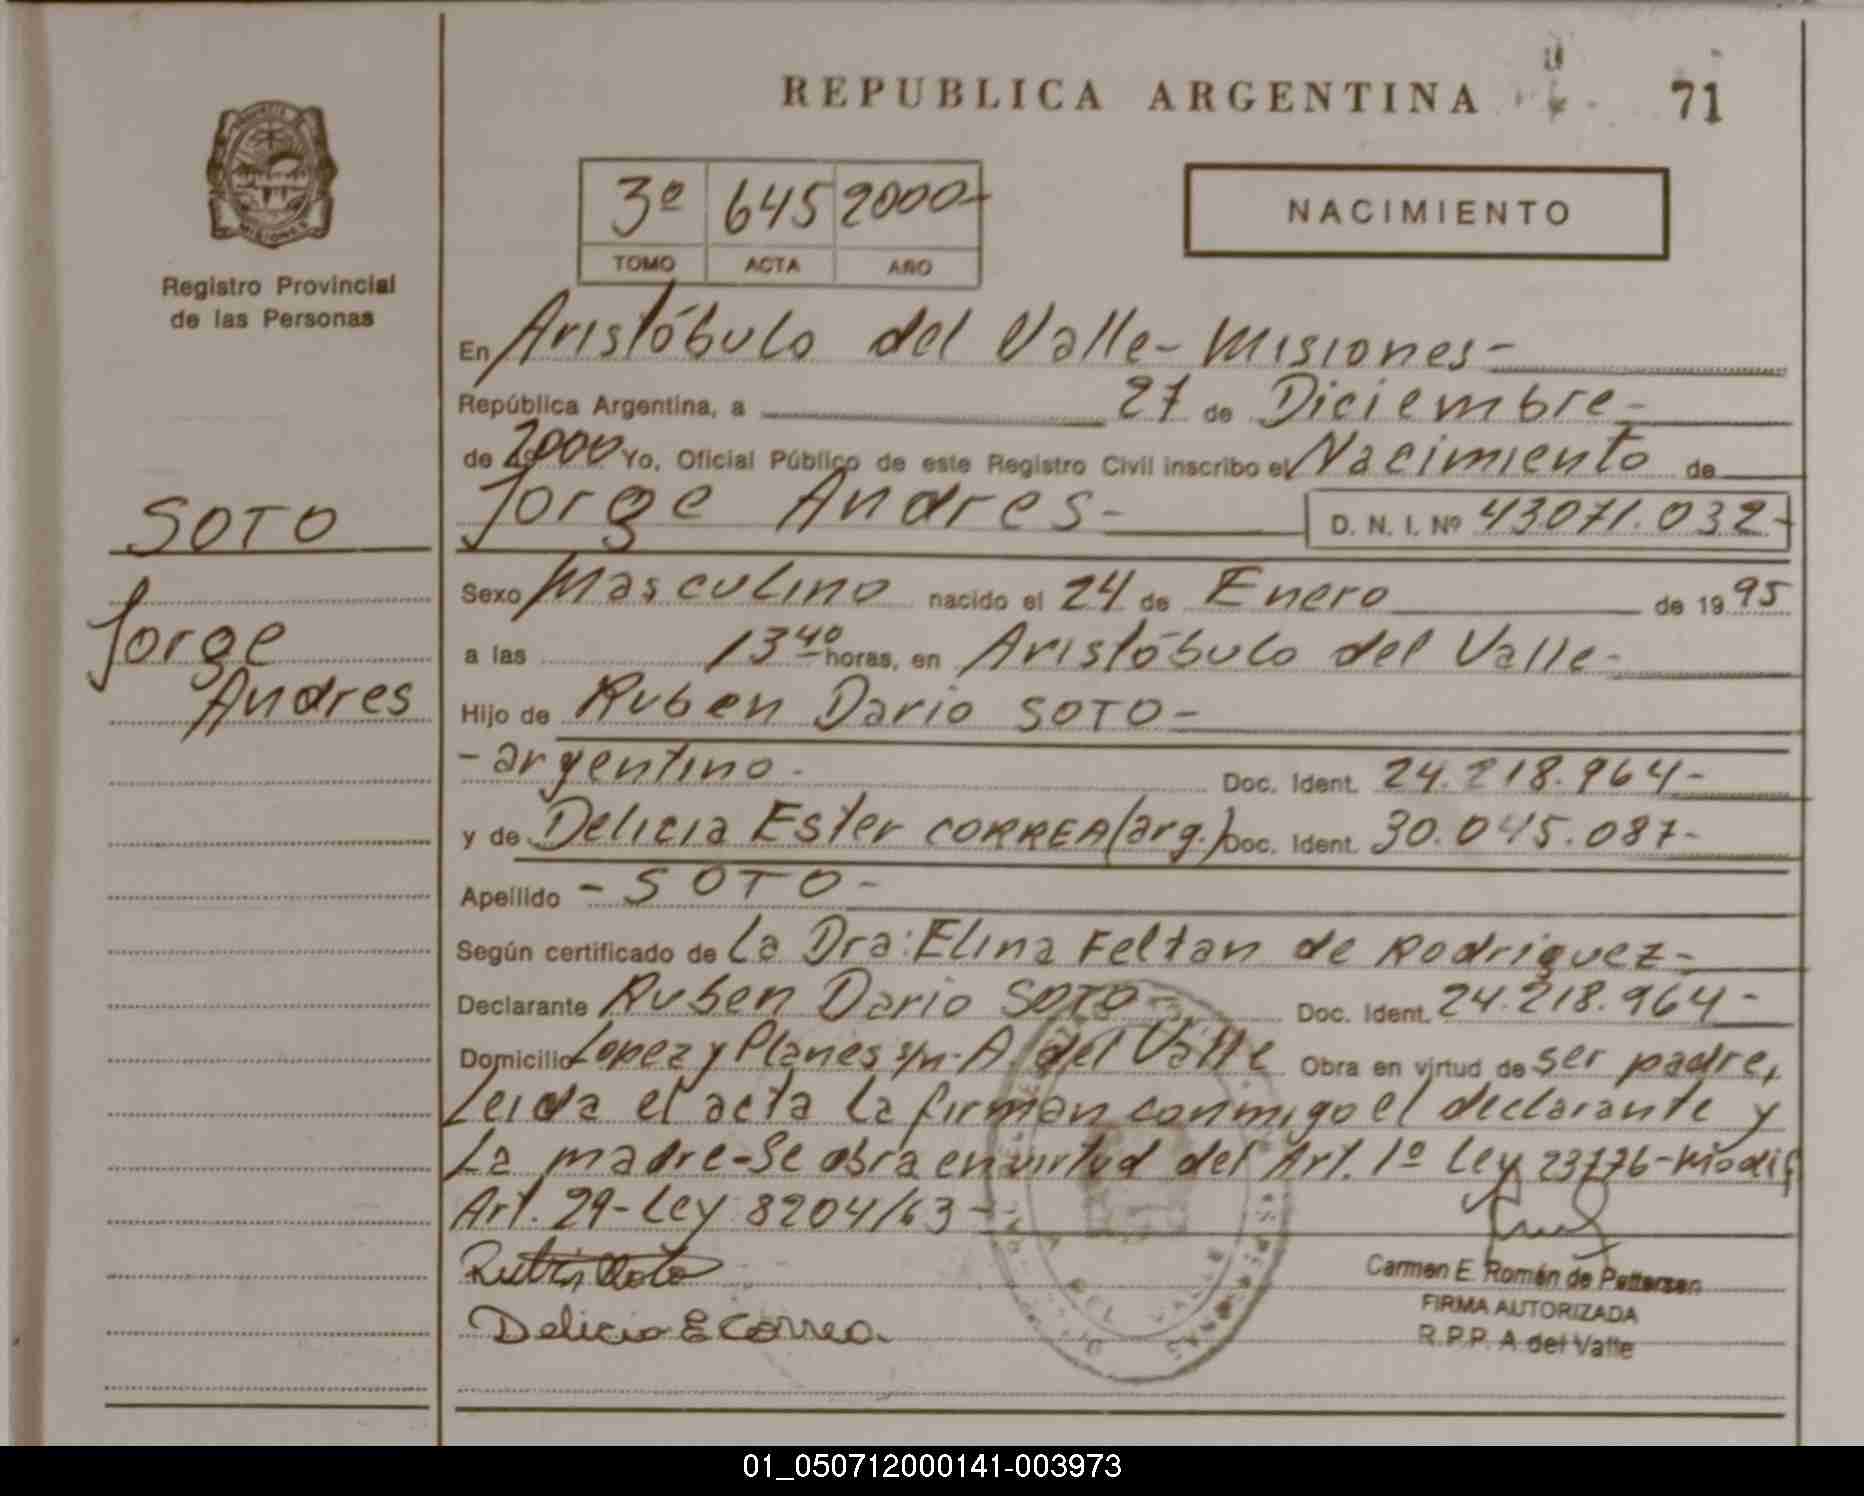 REPUBLICA ARGENTINA
71
3º 645 2000-
TOMO ACTA AÑO
NACIMIENTO
Registro Provincial
de las Personas
MISIONES
En Aristóbulo del Valle - Misiones -
República Argentina, a 27 de Diciembre -
de 2000 Yo, Oficial Público de este Registro Civil inscribo el Nacimiento de
SOTO
Jorge Andres -
D. N. I. Nº 43.071.032-
Sexo Masculino nacido el 24 de Enero de 1995
Jorge
Andres
a las 13 40 horas, en Aristóbulo del Valle -
Hijo de Ruben Dario SOTO -
- argentino - Doc. Ident. 24.218.964-
y de Delicia Ester CORREA (arg.) Doc. Ident. 30.045.087-
Apellido - SOTO -
Según certificado de La Dra: Elina Feltan de Rodriguez -
Declarante Ruben Dario SOTO - Doc. Ident. 24.218.964 -
Domicilio Lopez y Planes s/n - A. del Valle Obra en virtud de ser padre,
Leida el acta la firman conmigo el declarante y
La madre - Se obra en virtud del Art. 1º Ley 23776 - Modif
Art. 29 - Ley 8204/63 -
Delicia E Correa
Carmen E. Román de Pettersen
FIRMA AUTORIZADA
R.P.P. A del Valle
DEL VALLE
01_050712000141-003973